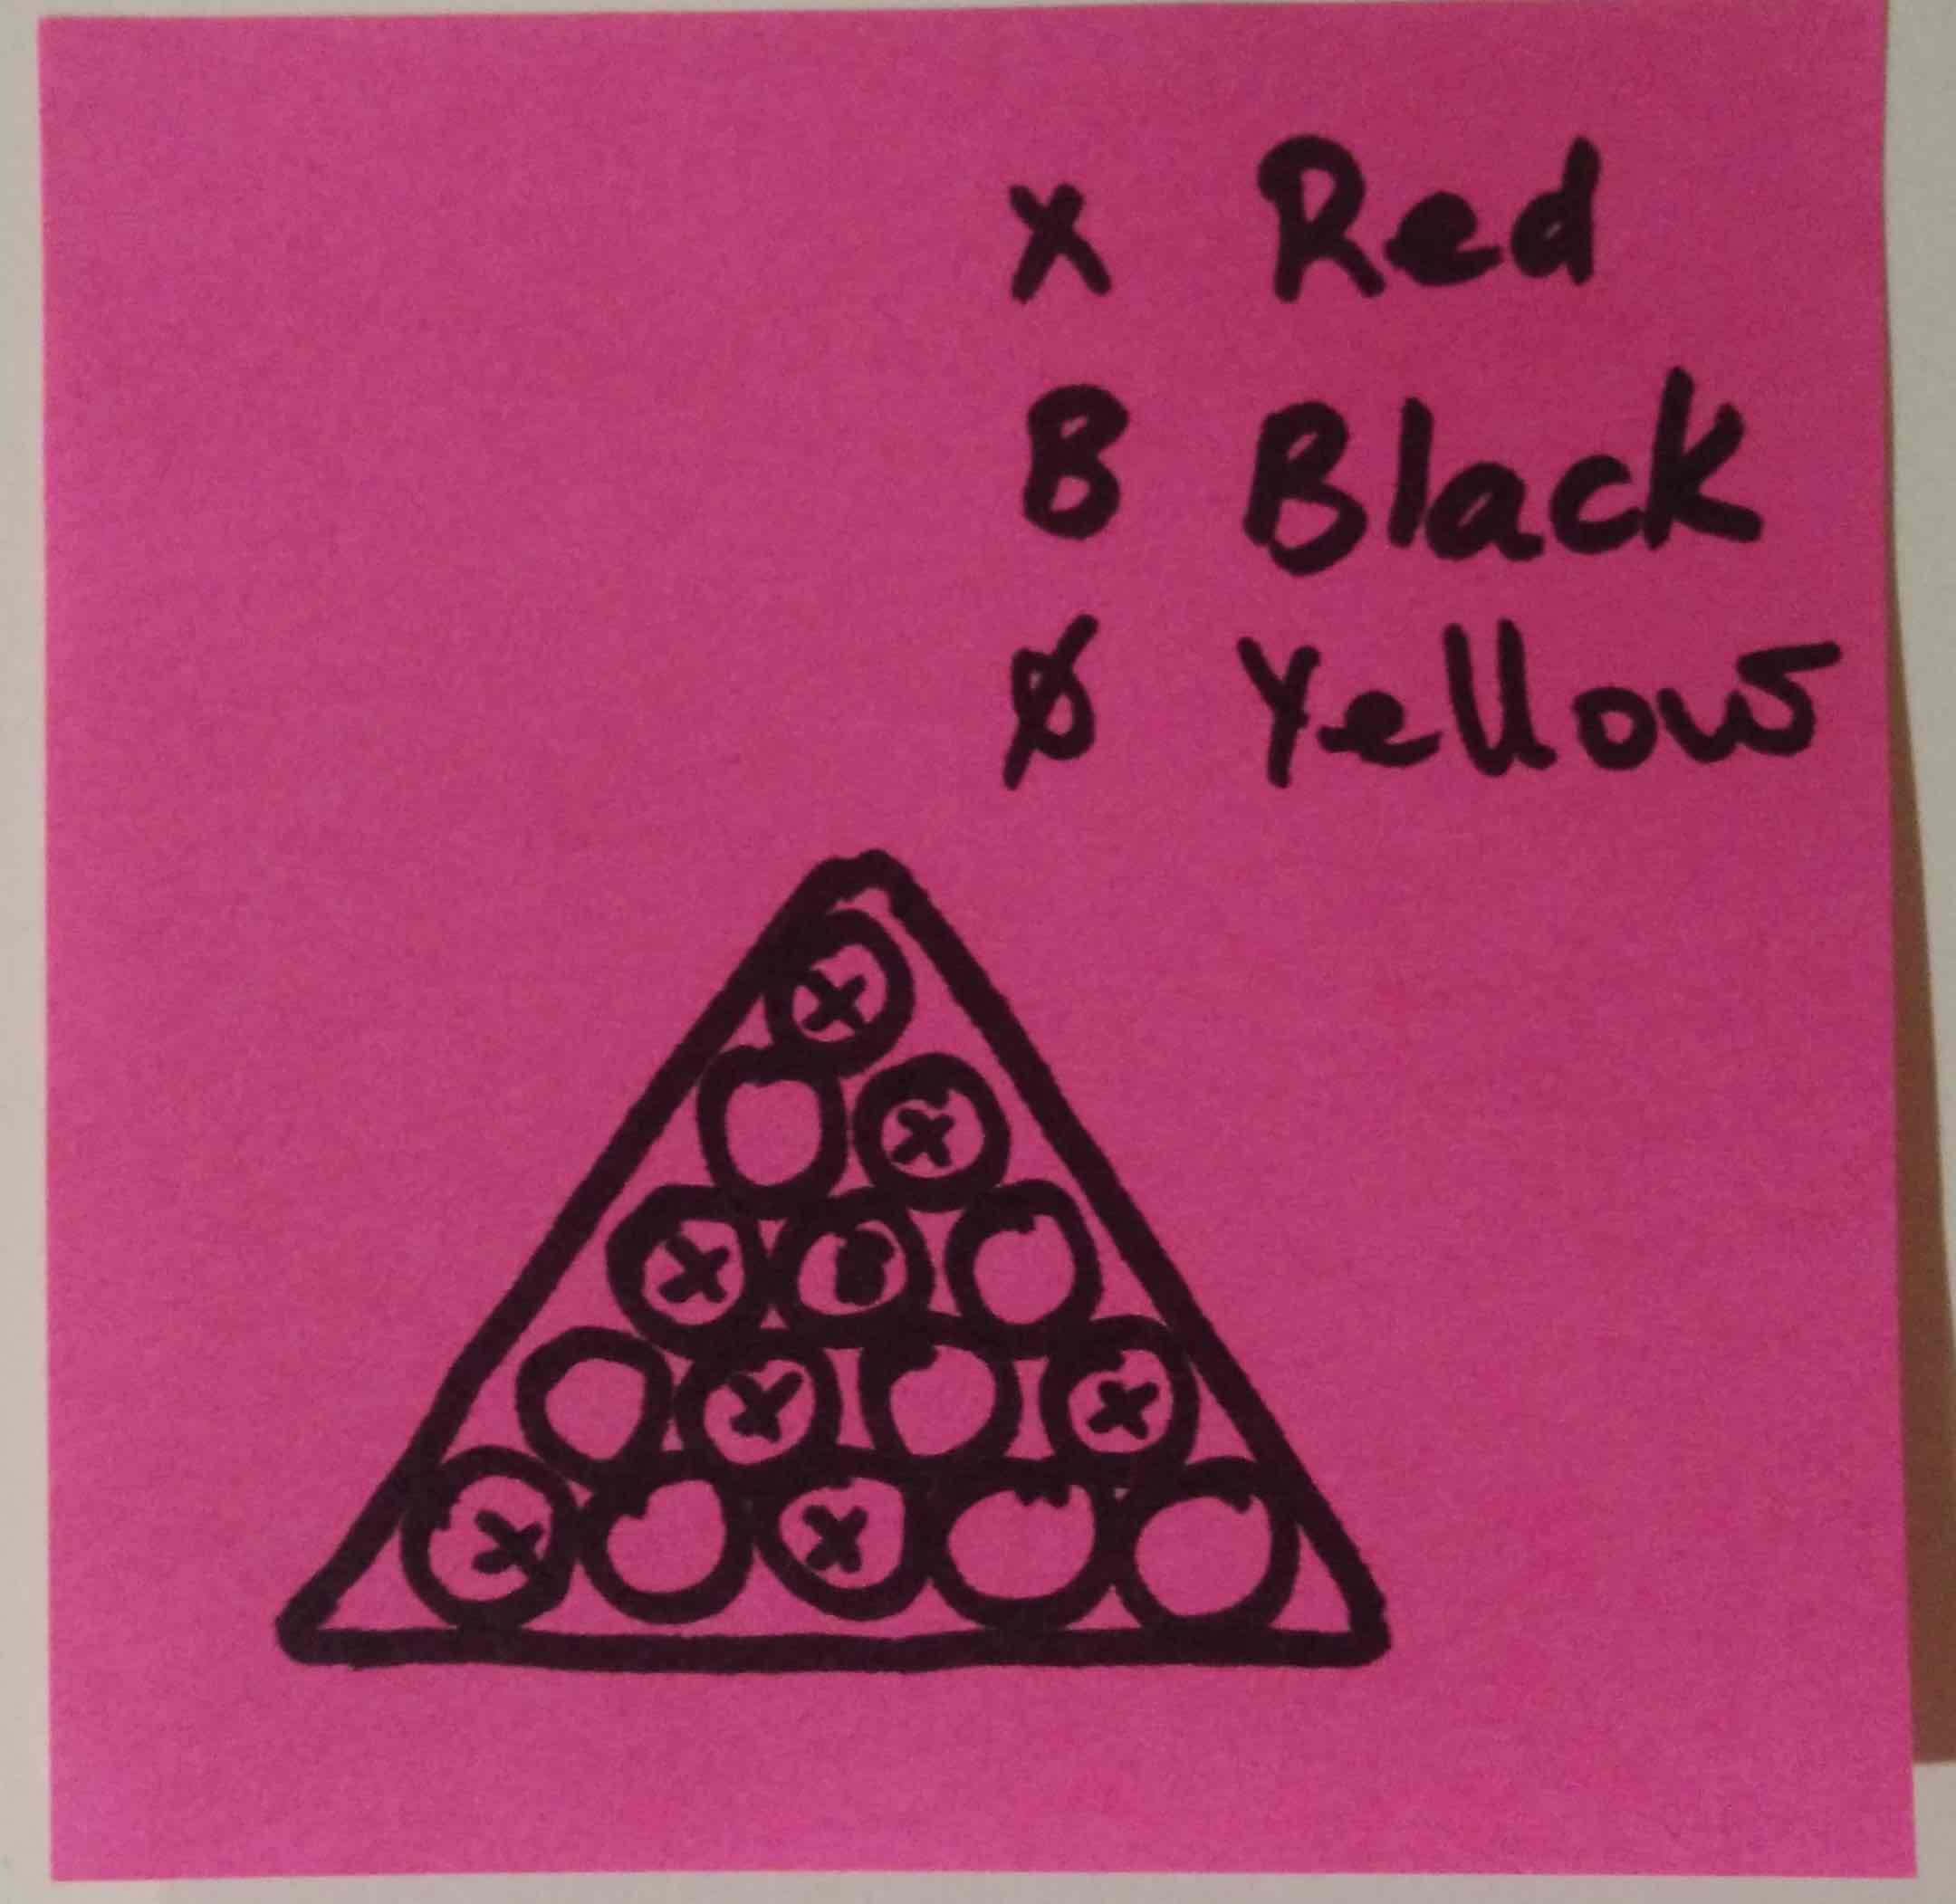 x Red
B Black
Ø Yellow
x
x
x B
x x
x x